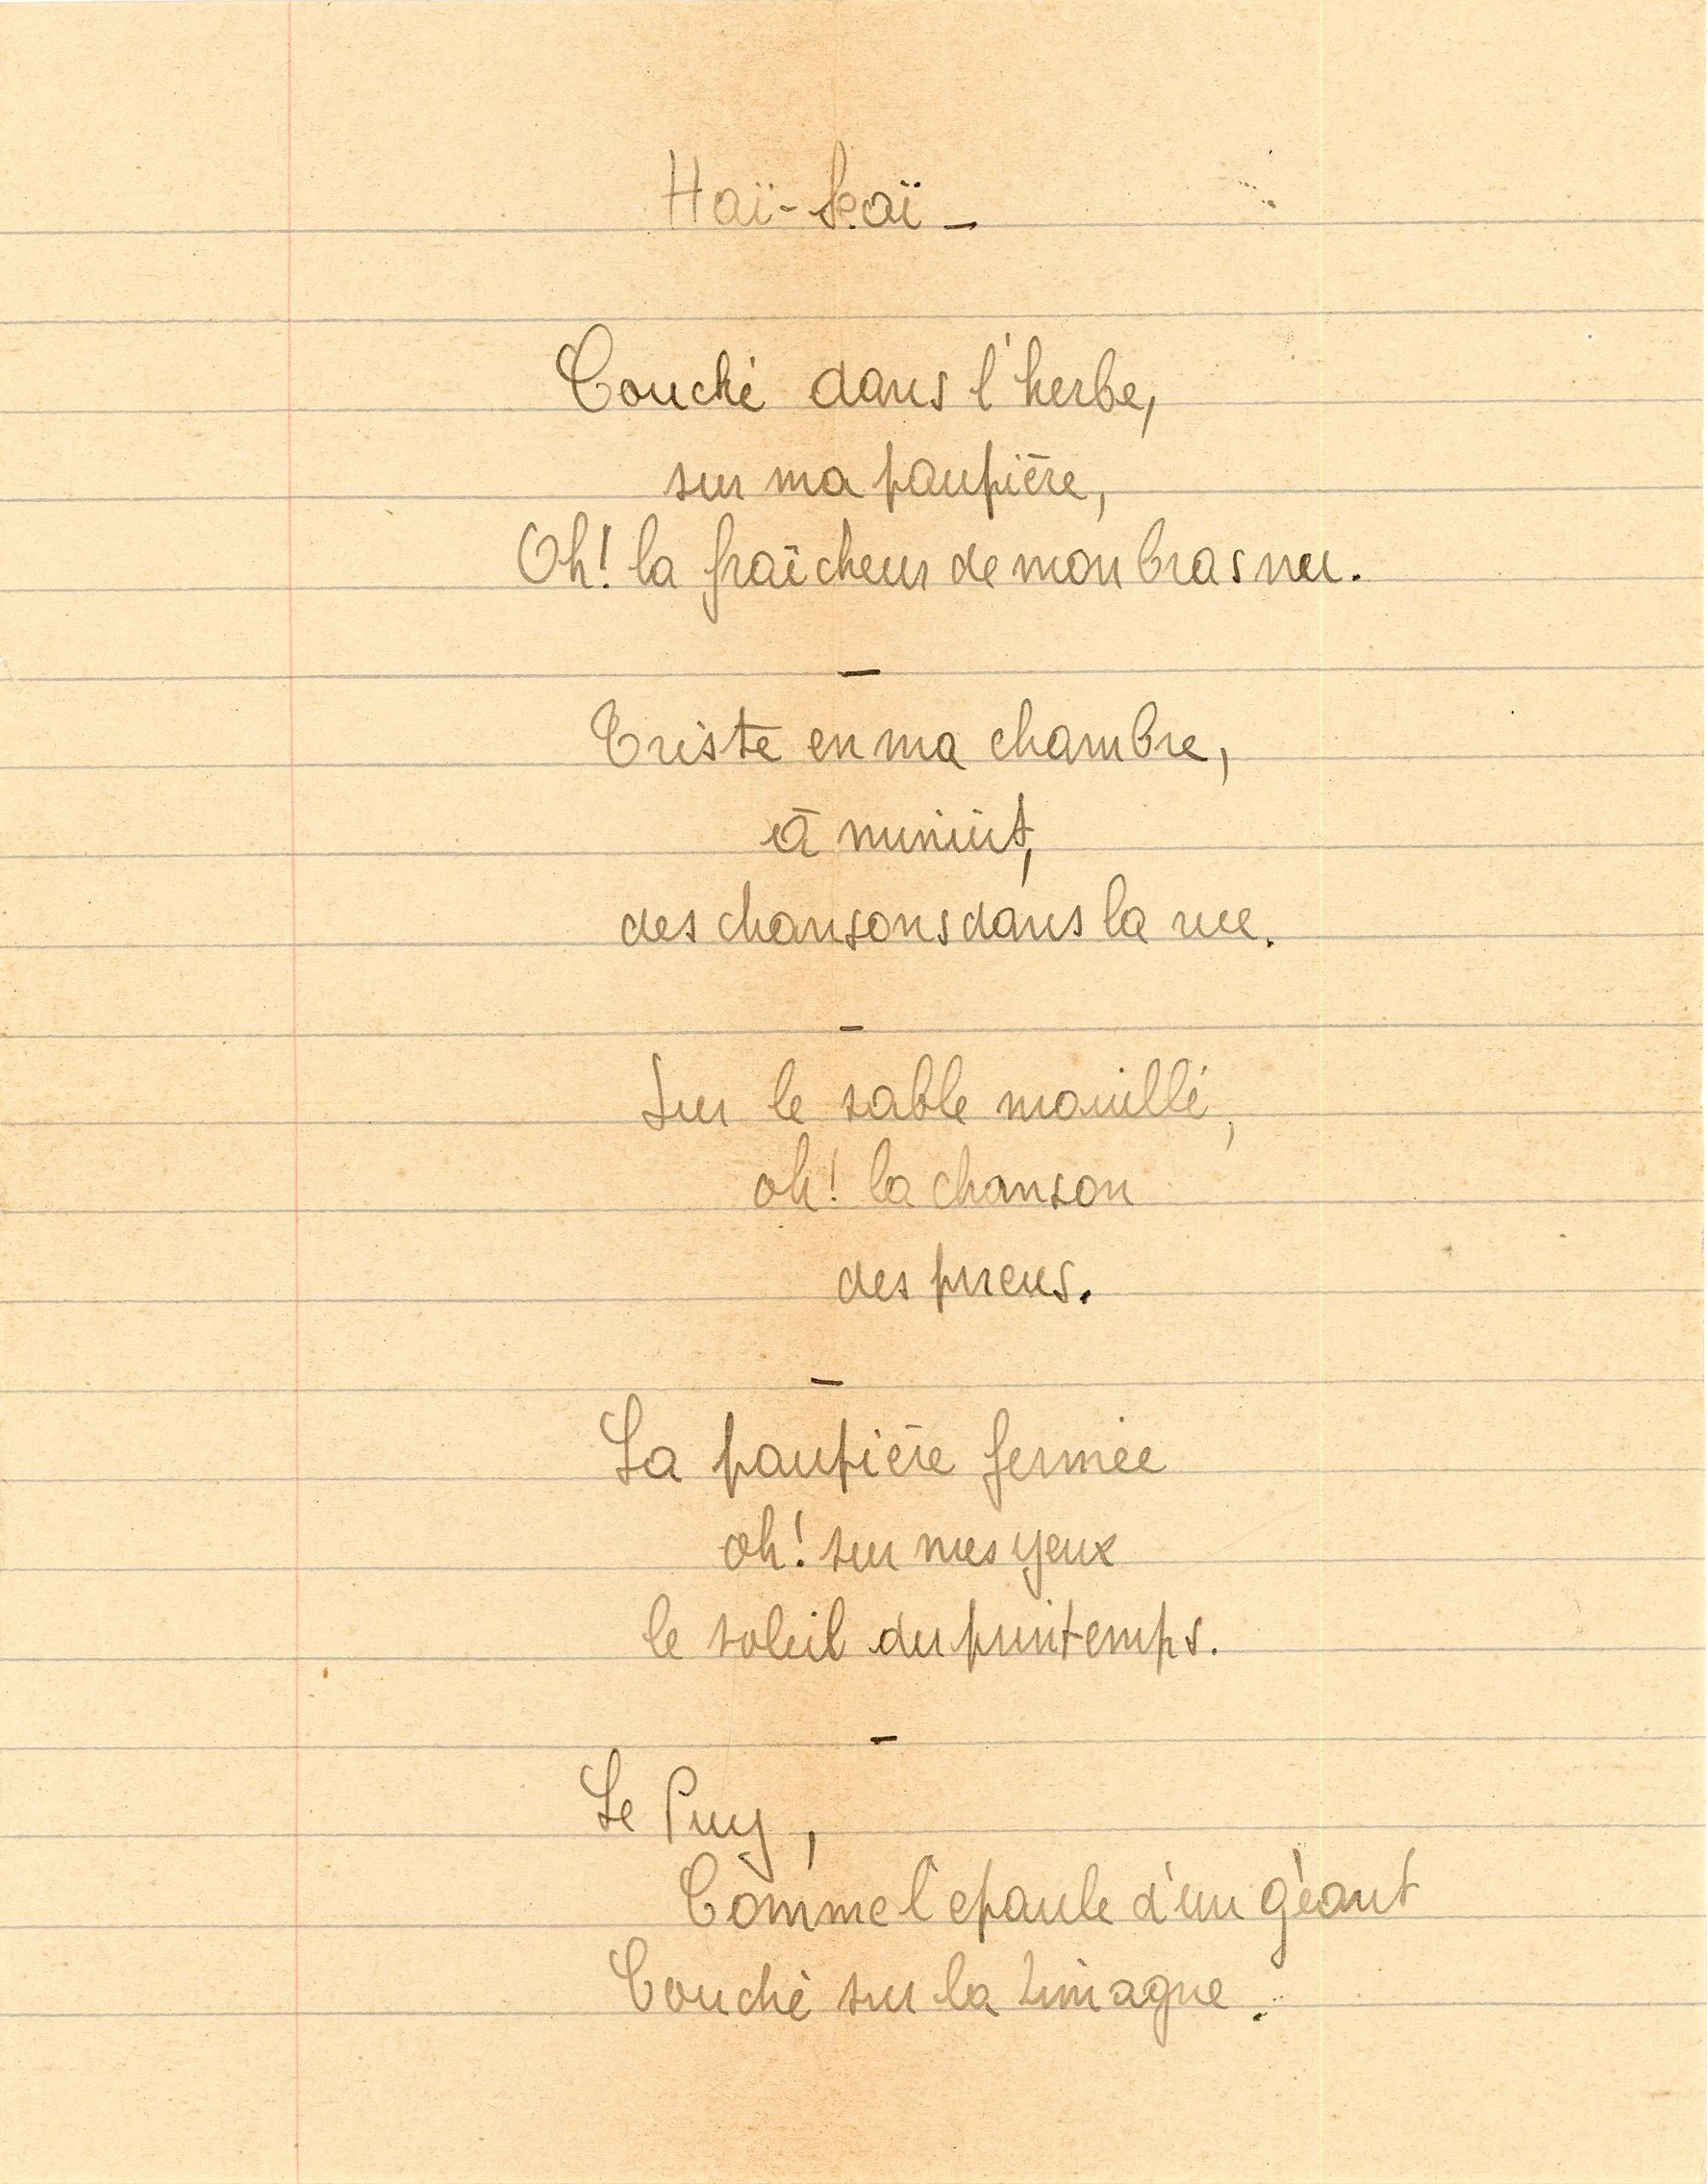 Haï-kaï-
Couché dans l'herbe,
sur ma paupière,
Oh! la fraîcheur de mon bras nu.
-
Triste en ma chambre,
à minuit,
des chansons dans la rue.
-
Sur le sable mouillé,
oh! la chanson
des pneus.
-
La paupière fermée
oh! sur mes yeux
le soleil du printemps.
-
Le Puy,
Comme l'epaule d'un géant
Couché sur la Limagne.